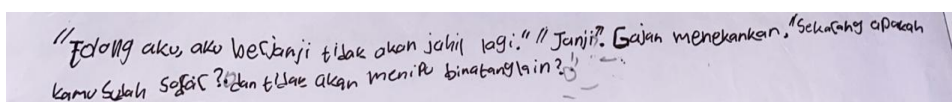 "Tolong aku, aku berjanji tidak akan jahil lagi." "Janji?. Gajah menekankan. "Sekarang apakah
kamu sudah sadar? dan tidak akan menipu binatang lain?